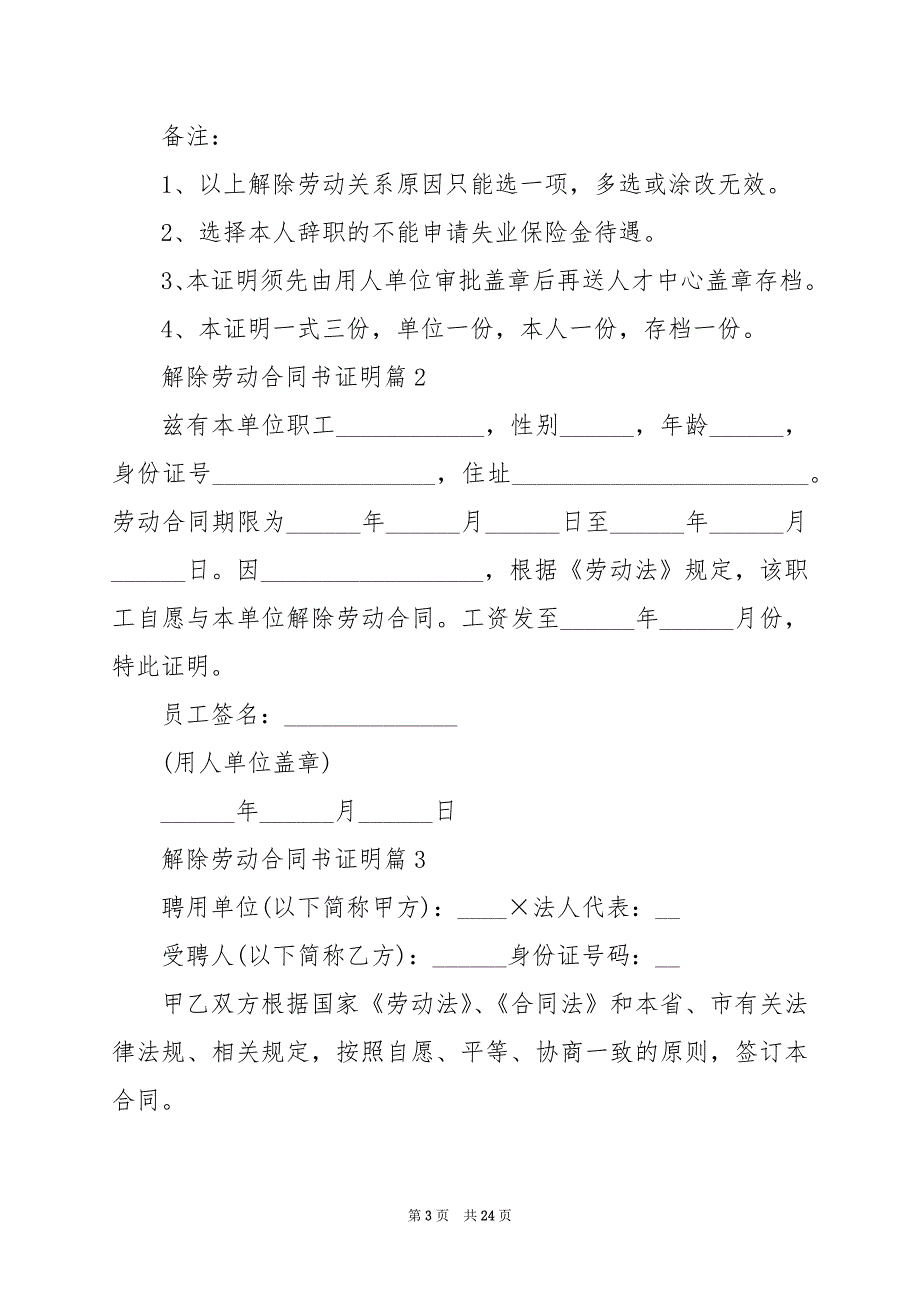 备注：
1、以上解除劳动关系原因只能选一项，多选或涂改无效。
2、选择本人辞职的不能申请失业保险金待遇。
3、本证明须先由用人单位审批盖章后再送人才中心盖章存档。
4、本证明一式三份，单位一份，本人一份，存档一份。
解除劳动合同书证明篇2
兹有本单位职工____________，性别______，年龄______，
身份证号__________________，住址________________________。
劳动合同期限为______年______月______日至______年______月
______日。因__________________，根据《劳动法》规定，该职
工自愿与本单位解除劳动合同。工资发至______年______月份，
特此证明。
员工签名：______________
(用人单位盖章)
______年______月______日
解除劳动合同书证明篇3
聘用单位(以下简称甲方)：____×法人代表：__
受聘人(以下简称乙方)：______身份证号码：__
甲乙双方根据国家《劳动法》、《合同法》和本省、市有关法
律法规、相关规定，按照自愿、平等、协商一致的原则，签订本
合同。
第 3 页 共 24 页